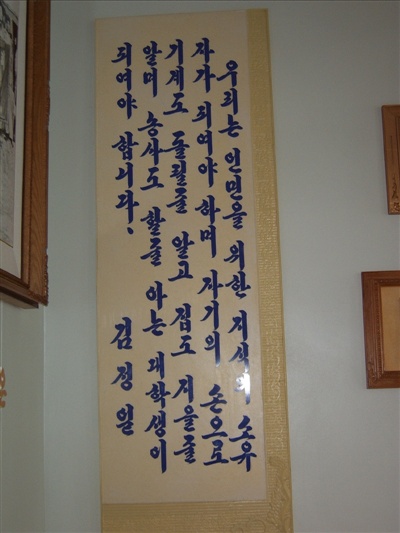 우리는 인민을 위한 지식의 소유
자가 되여야 하며 자기의 손으로
기계도 돌릴줄 알고 집도 지을줄
알며 농사도 할줄 아는 대학생이
되여야 합니다.
김정일